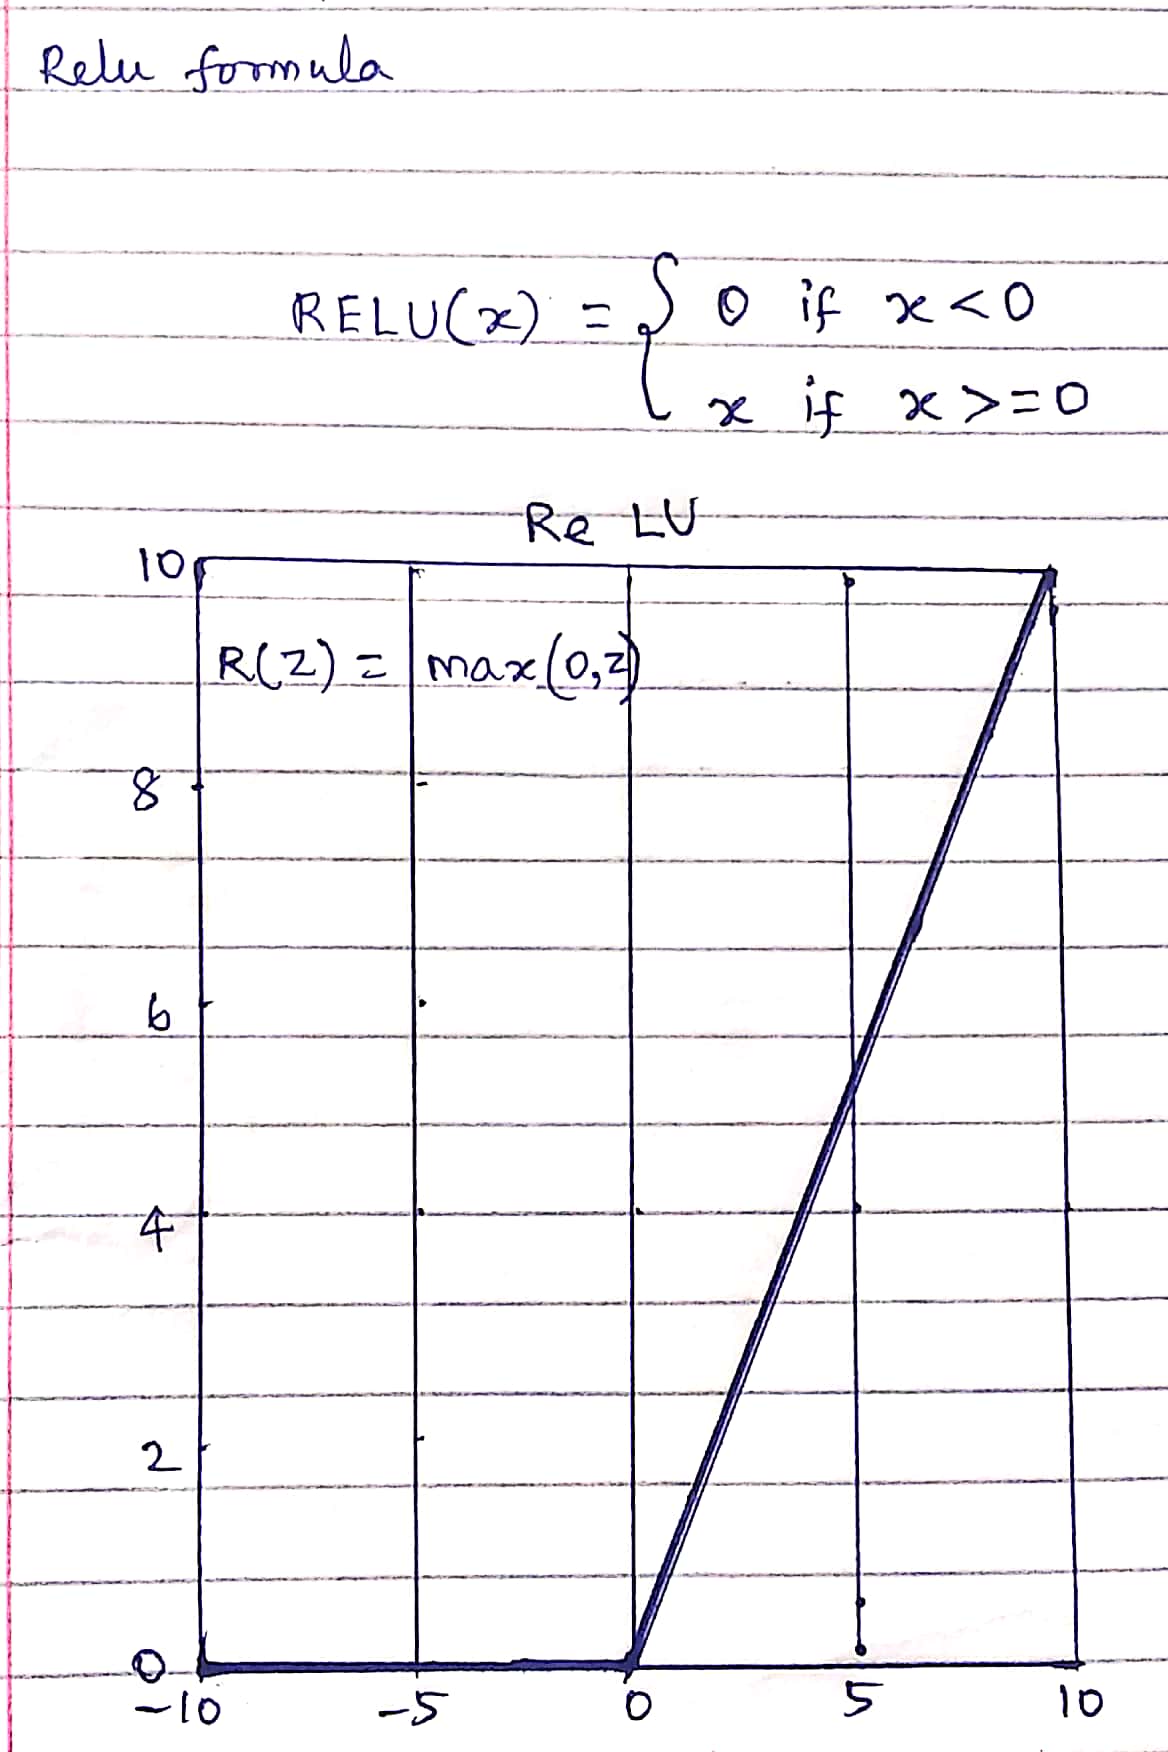 Relu formula
RELU(x) = { 0 if x < 0
x if x >= 0
Re LU
10
R(Z) = max(0,z)
8
6
4
2
0
-10 -5 0 5 10